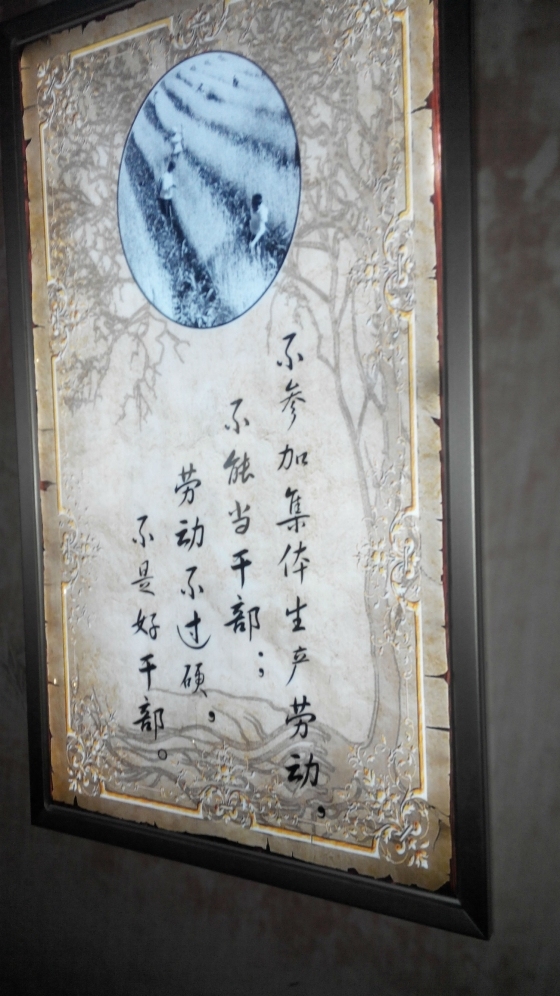 不参加集体生产劳动，
不能当干部；
劳动不过硬，
不是好干部。